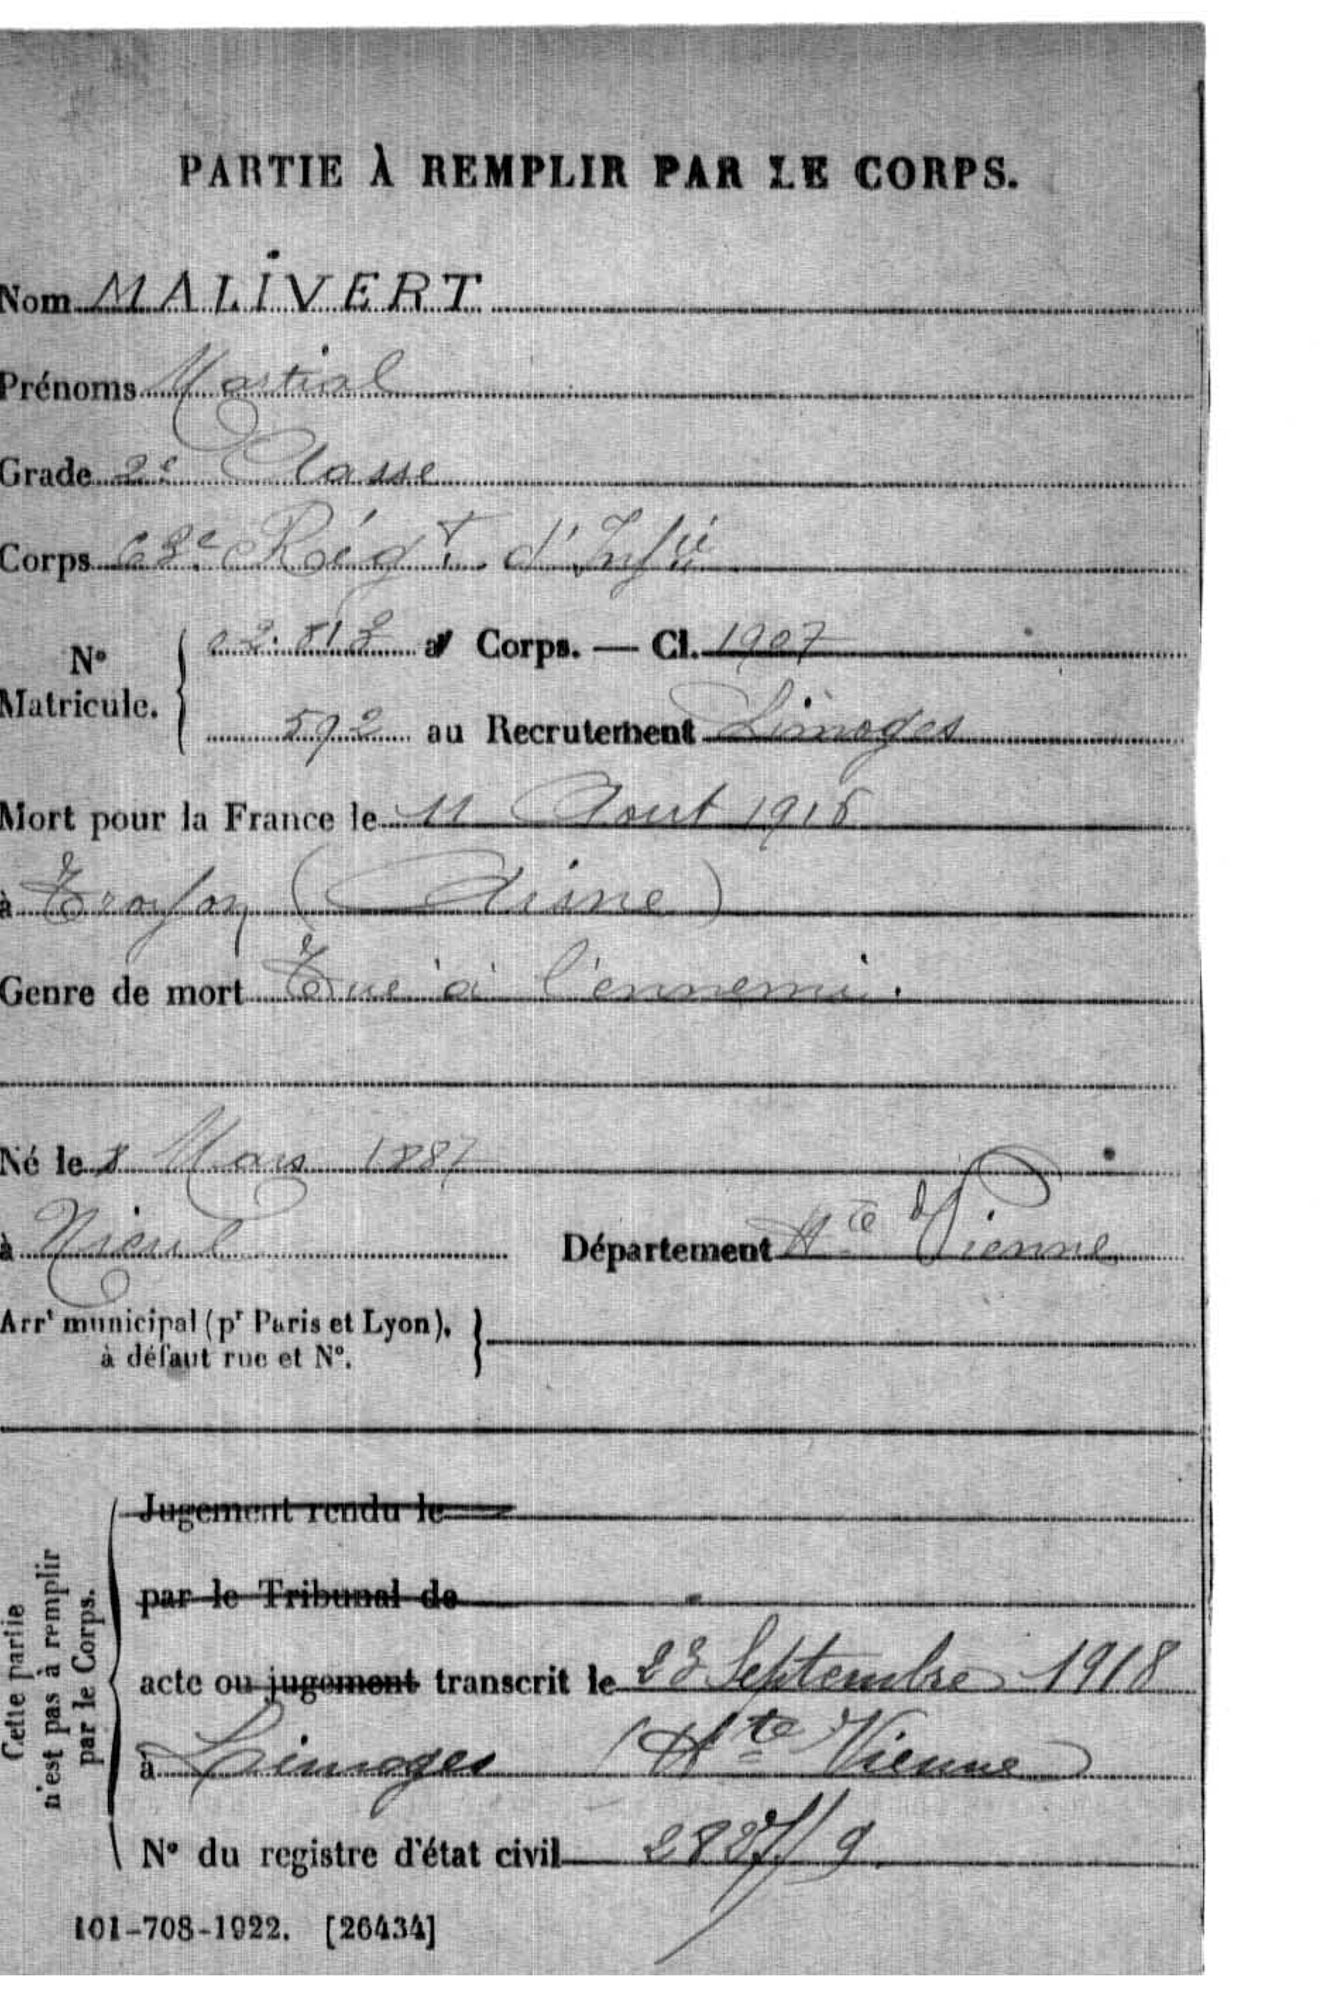 PARTIE À REMPLIR PAR LE CORPS.
Nom MALIVERT
Prénoms Martial
Grade 2e Classe
Corps 63e Régt. d'Infie
N° Matricule. { 02.813 au Corps. — Cl. 1907
592 au Recrutement Limoges
Mort pour la France le 11 Aout 1916
à Troyon (Aisne)
Genre de mort Tué à l'ennemi.
Né le 8 Mars 1887
à Nieul Département Hte Vienne
Arrt municipal (pr Paris et Lyon), }
à défaut rue et N°.
Cette partie
n'est pas à remplir
par le Corps.
Jugement rendu le
par le Tribunal de
acte ou jugement transcrit le 23 Septembre 1918
à Limoges (Hte Vienne)
N° du registre d'état civil
101-708-1922. [26434]